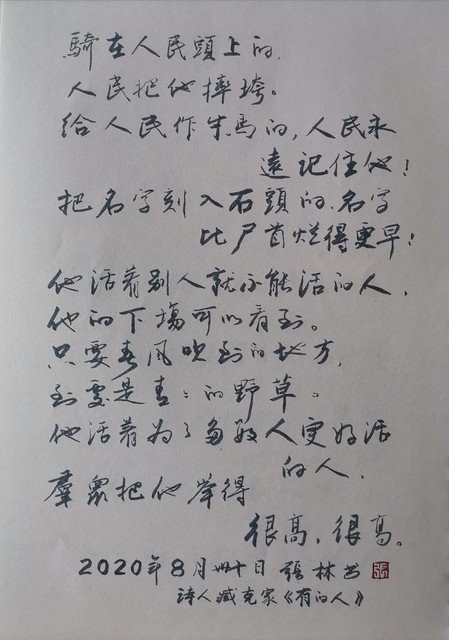 騎在人民頭上的,
人民把他摔垮。
给人民作牛馬的,人民永
遠記住他!
把名字刻入石頭的,名字
比尸首烂得更早!
他活着别人就不能活的人,
他的下場可以看到。
只要春风吹到的地方,
到處是青々的野草。
他活着为了多数人更好活
的人,
羣眾把他举得
很高,很高。
2020年8月卅十日 張林书 張
詩人臧克家《有的人》